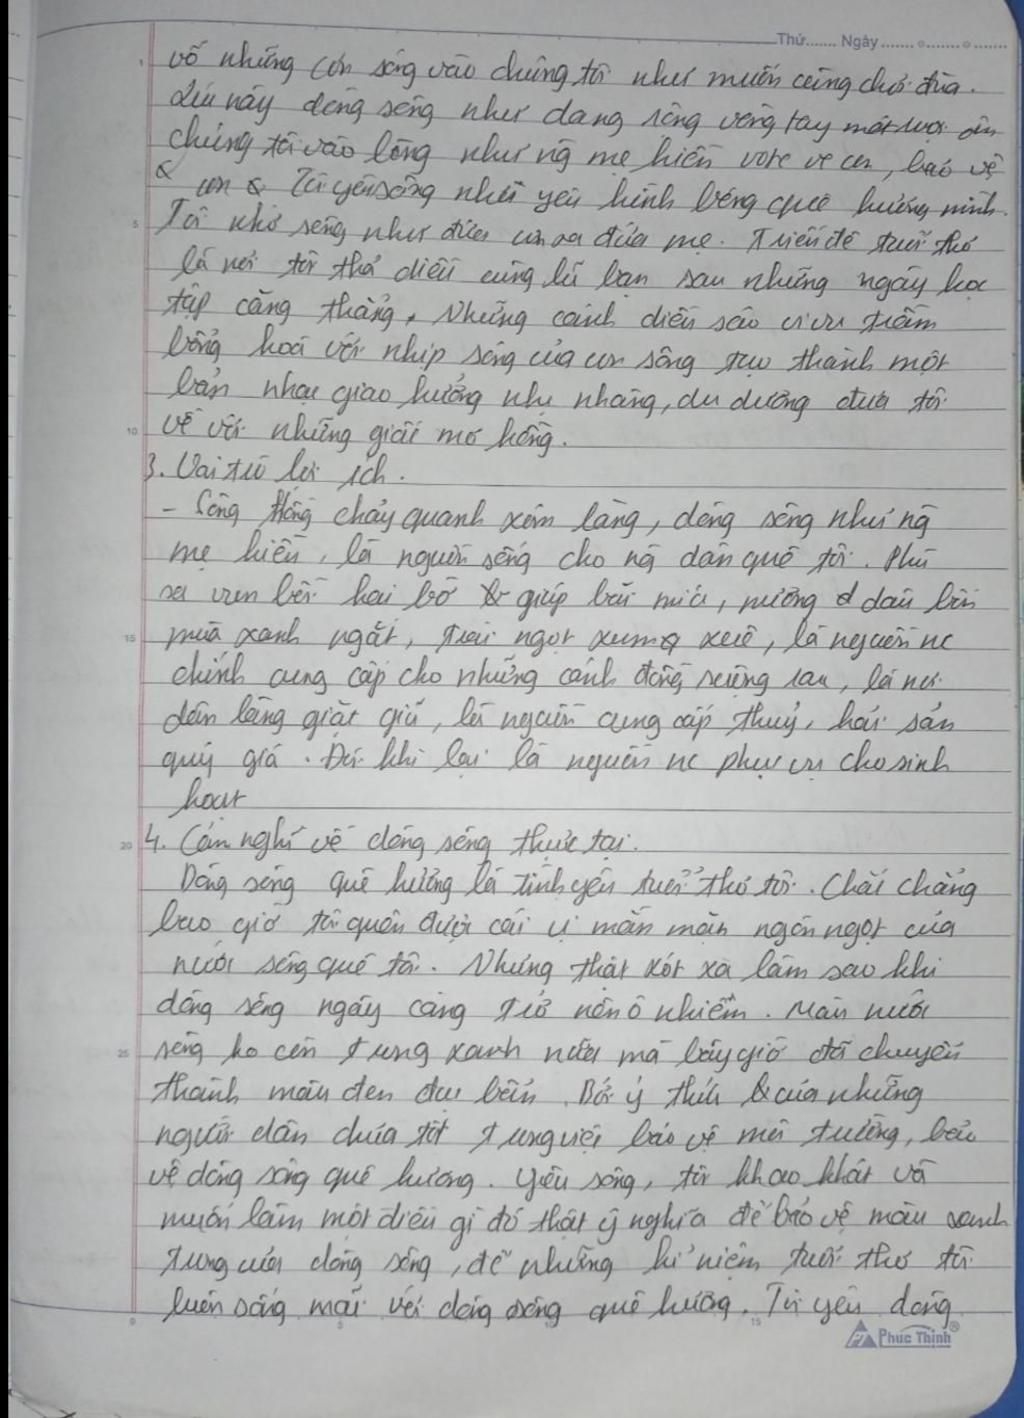 Thứ....... Ngày.......
vỗ những con sóng vào chúng tôi như muốn cùng chơi đùa.
Lúc này dòng sông như dang rộng vòng tay ôm
chúng tôi vào lòng như ng mẹ hiền vỗ về con, bảo vệ
con Tôi yêu sông như yêu hình bóng quê hương mình.
Tôi nhớ sông như đứa con xa đứa mẹ. Triền đê tuổi thơ
là nơi tôi thả diều cùng lũ bạn sau những ngày học
tập căng thẳng. Những cánh diều sáo vi vu trầm
bổng hoà với nhịp sóng của con sông tạo thành một
bản nhạc giao hưởng nhẹ nhàng, du dương đưa tôi
về với những giấc mơ hồng.
3. Vai trò lợi ích.
- Sông Hồng chảy quanh xóm làng, dòng sông như ng
mẹ hiền, là nguồn sống cho ng dân quê tôi. Phù
sa ven bồi hai bờ giúp bãi mía, nương dâu bốn
mùa xanh ngắt, trái ngọt xum xuê, là nguồn nc
chính cung cấp cho những cánh đồng ruộng rau, là nơi
dân làng giặt giũ, là nguồn cung cấp thuỷ, hải sản
quý giá. Đôi khi lại là nguồn nc phục vụ cho sinh
hoạt
4. Cảm nghĩ về dòng sông thực tại.
Dòng sông quê hương là tình yêu tuổi thơ tôi. Chắc chẳng
bao giờ tôi quên được cái vị mằn mặn ngòn ngọt của
nước sông quê tôi. Nhưng thật xót xa làm sao khi
dòng sông ngày càng trở nên ô nhiễm. Màu nước
sông ko còn trong xanh nữa mà bây giờ đã chuyển
thành màu đen đục bẩn. Bởi ý thức của những
người dân chưa tốt trong việc bảo vệ môi trường, bảo
vệ dòng sông quê hương. Yêu sông, tôi khao khát và
muốn làm một điều gì đó thật ý nghĩa để bảo vệ màu xanh
trong của dòng sông, để những kỉ niệm tuổi thơ tôi
luôn sống mãi với dòng sông quê hương. Tôi yêu dòng
Phúc Thịnh